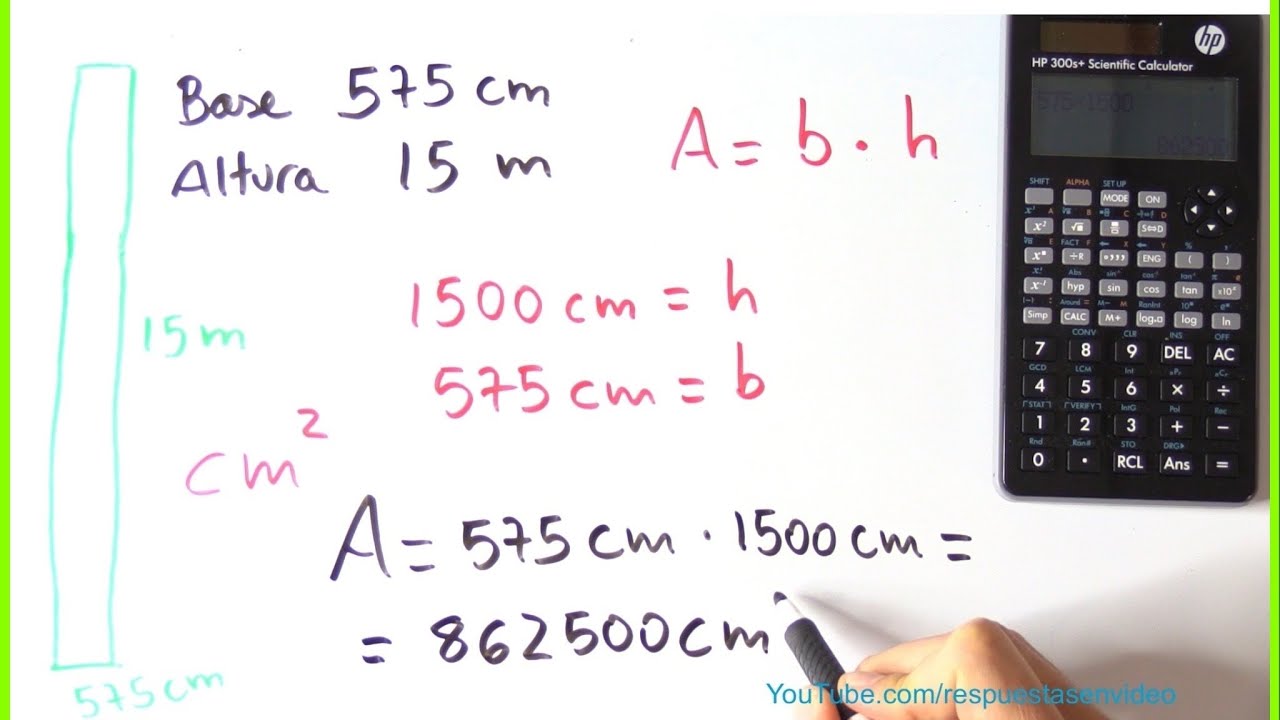 Base 575 cm
Altura 15 m
A = b · h
1500 cm = h
575 cm = b
15 m
cm²
A = 575 cm · 1500 cm =
= 862500 cm
575 cm
YouTube.com/respuestasenvideo
hp
HP 300s+ Scientific Calculator
575×1500
862500
SHIFT ALPHA SET UP
MODE ON
x² √ S⇔D
FACT
÷R ENG ( )
Abs sin⁻¹ cos⁻¹ tan⁻¹
x⁻¹ hyp sin cos tan
M− RanInt
Simp CALC M+ log log ln
CONV CLR INS OFF
7 8 9 DEL AC
GCD LCM Int nPr nCr
4 5 6 × ÷
STAT VERIFY IntG Pol Rec
1 2 3 + −
Rnd Ran# STO DRG▸
0 · RCL Ans =